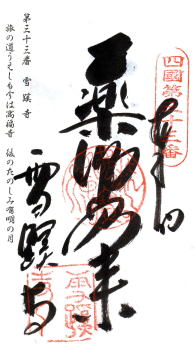 四國第三十三番
奉拝
薬師如来
雪蹊寺
第三十三番　雪蹊寺
旅の道うえしも今は高福寺　後のたのしみ有明の月